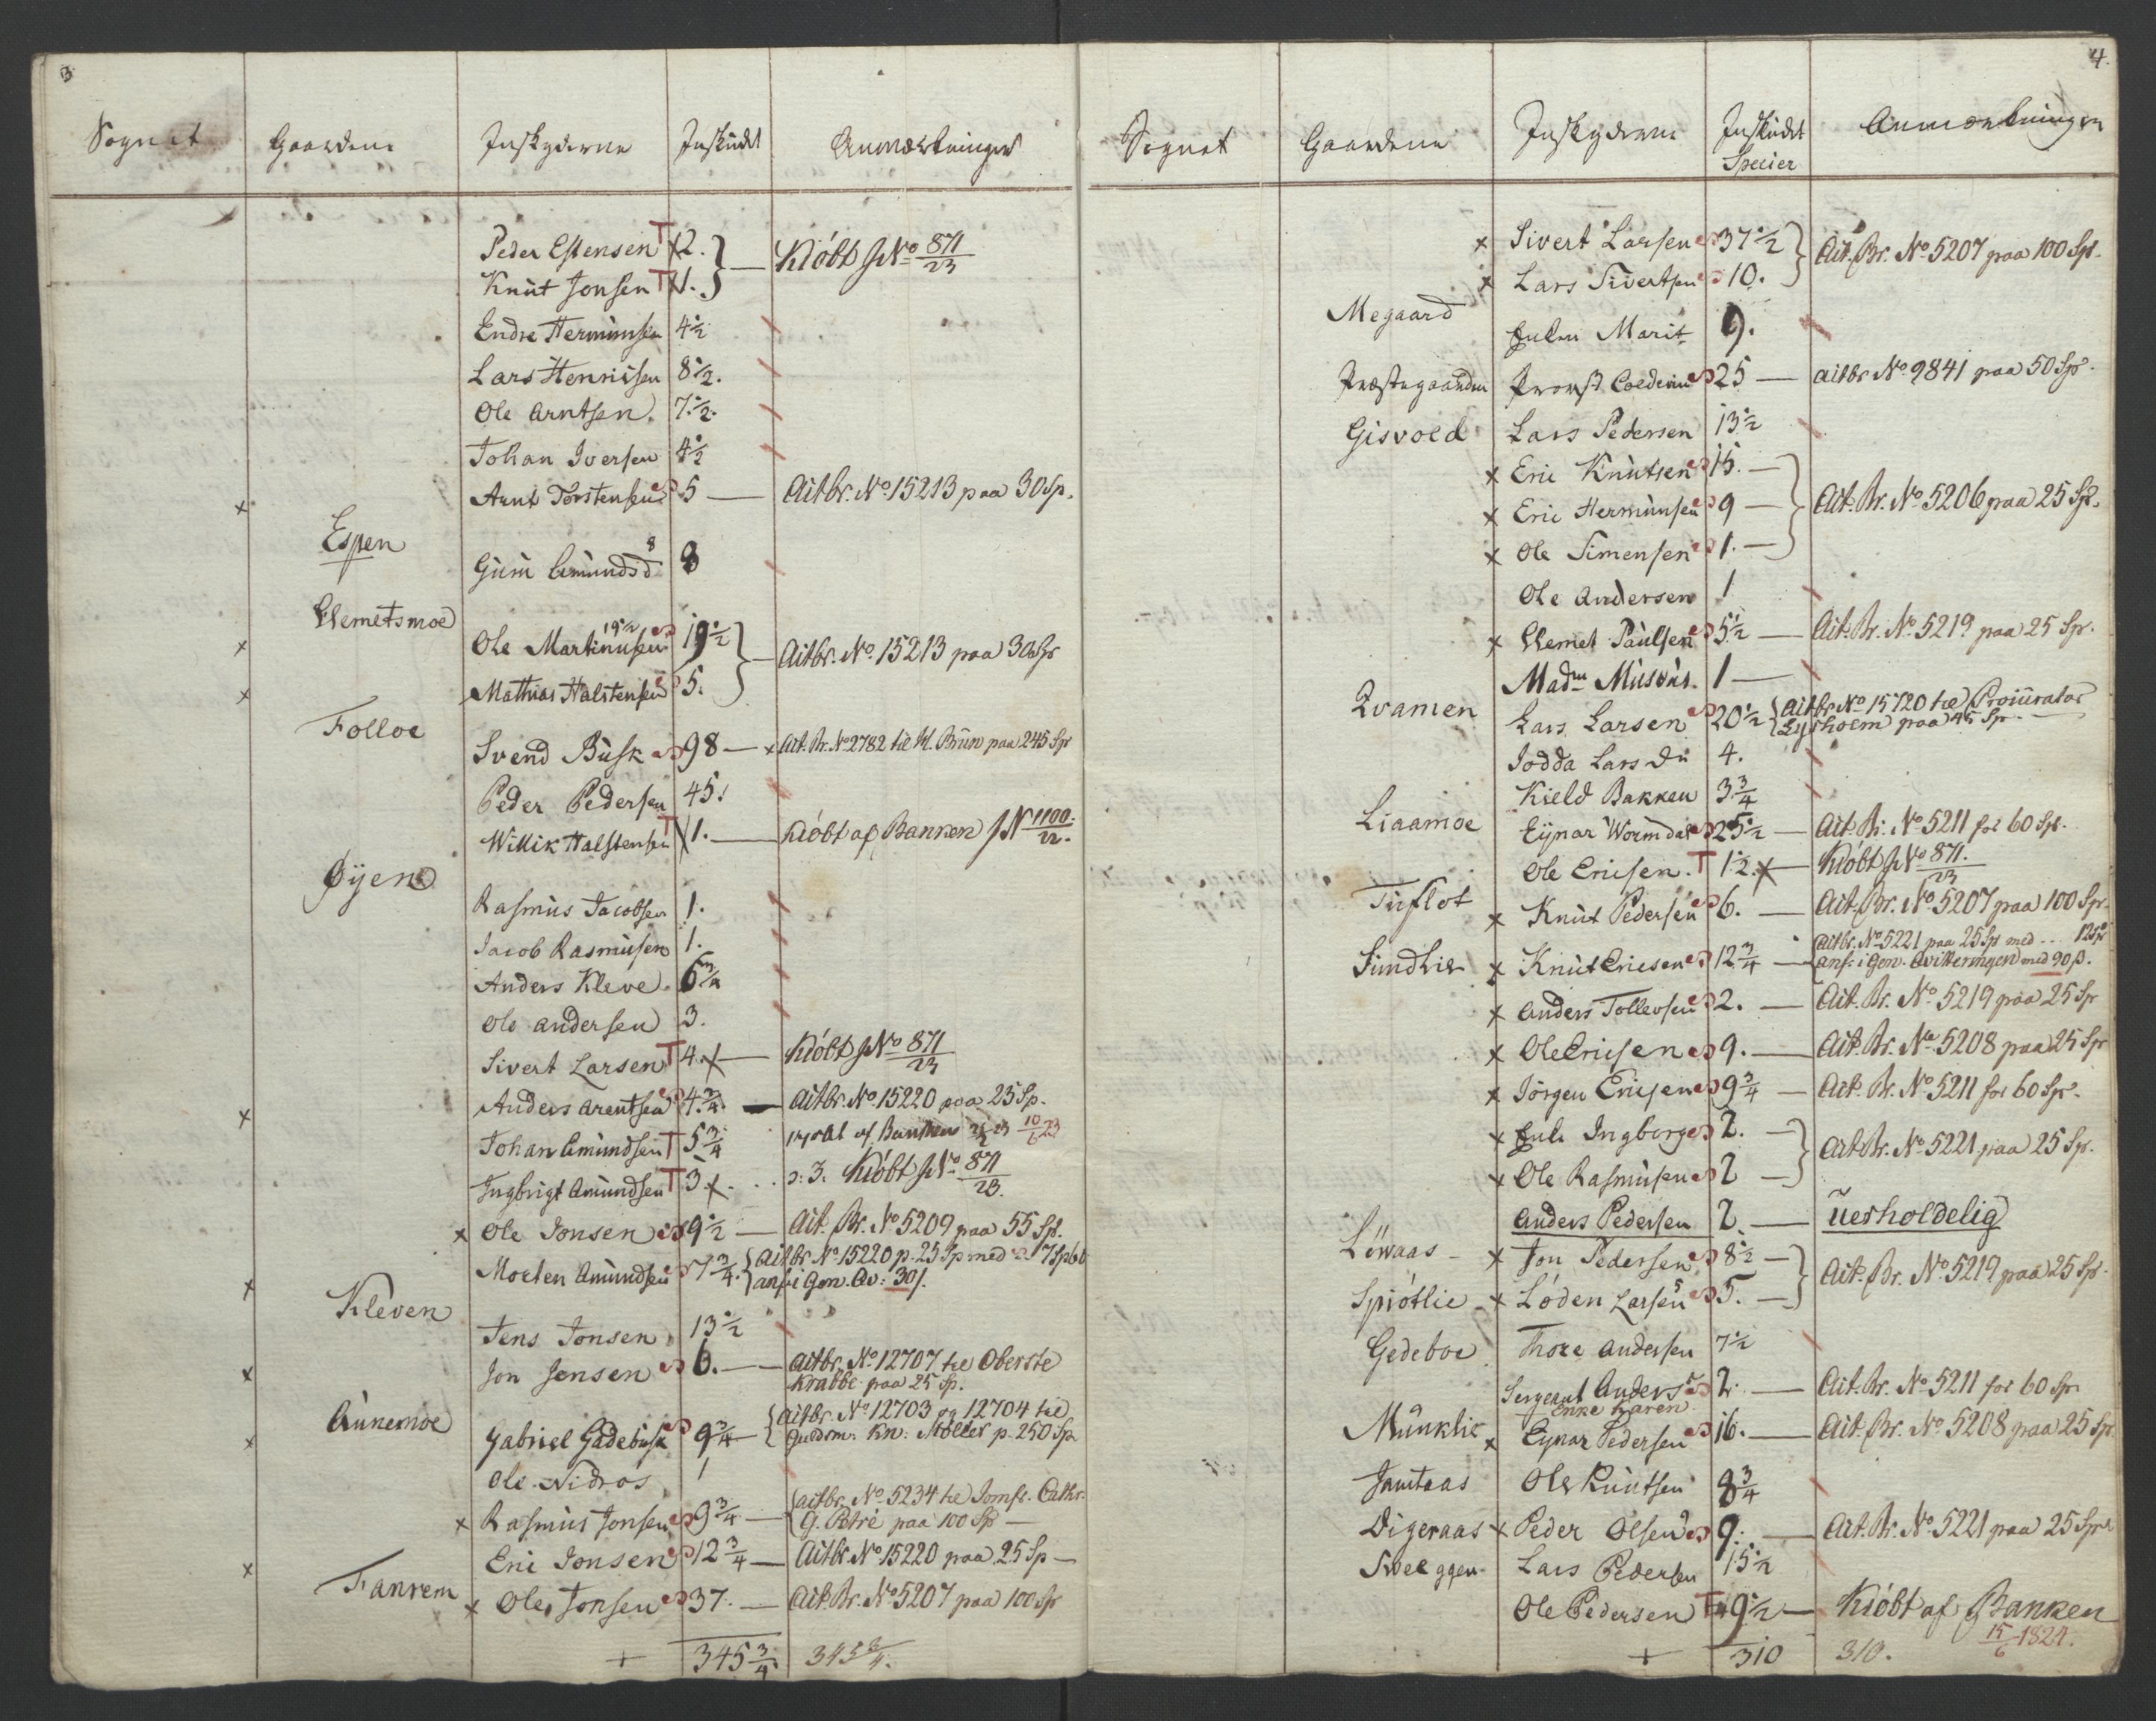 3
Sognet Gaardene Indskyderne Indskudt Anmærkninger
Peder Estensen T x 2. } — Kiöbt JNo 871/23
Knut Jonsen T x 1.
Endre Hermunsen 4½
Lars Henrissen 8½.
Ole Arntsen. 7½.
Johan Iversen 4½
x Arnt Torstensen 5 — Actbr. No 15213 paa 30 Sp.
Espen
Guru Amundsd 8 8
Clemetsmoe
x Ole Martinusen 19½ 19½ } — Actbr. No. 15213 paa 30 Spr
x Mathias Halstensen 5.
Folloe
Svend Busk 98 — x Act. Br. No 2782 til H. Brun paa 245 Spr
Peder Pedersen 45.
Willik Halstensen T x 1. — Kiöbt af Banken JN 1100/22.
Øyen
Rasmus Jacobsen 1.
Jacob Rasmusen 1.
Anders Kleve. 6¾
Ole Andersen 3.
Sivert Larsen T 4. x — Kiöbt JNo 871/23
x Anders Arentsen 4¾. — Actbr. No. 15220 paa 25 Sp.
Johan Amundsen T 5¾ af Banken 10/6 23
Ingbrigt Amundsen T 3 x . . . o: 3. Kiöbt JNo 871/23.
x Ole Jonsen 9½ — Act. Br. No 5209 paa 55 Sp.
x Morten Amundsen 7¾. { Actbr. No 15220 p. 25 Sp med
anf i Gen. Qv: 30 s.
Kleven
Jens Jonsen 13½
x Jon Jensen 6. — Actbr. No. 12707 til Oberste
Krabbe paa 25 Sp.
Aunemoe
x Gabriel Gadebusk 9¾ — { Actbr. No. 12703 og 12704 til
Guldsm: Kn: Möller p. 250 Sp
Ole Nidros 1
x Rasmus Jonsen 9¾ — { Actbr. No. 5234 til Jomfr. Cathr.
G. Petre paa 100 Sp —
x Eric Jonsen 12¾ — Actbr. No. 15220 paa 25 Sp —
Fanrem
x Ole Jonsen 37. — Act. Br. No 5207 paa 100 Spr
+ 345¾. 345¾.
4.
Sognet Gaardene Indskyderne Indskudt Anmærkninger
Specier
x Sivert Larsen 37½ } Act. Br. No 5207 paa 100 Sp.
x Lars Sivertsen 10.
Megaard
Enken Marit 9.
Præstegaarden Provst 25 — Actbr No. 9841 paa 50 Sp.
Gisvold Lars Pedersen 13½
x Eric Knutsen 15. — } Act. Br. No 5206 paa 25 Sp.
x Eric Hermunsen 9 —
x Ole Simensen 1. —
Ole Andersen 1
x Clemet Paulsen 5½ — Act. Br. No 5219 paa 25 Sp.
Madm Musous. 1 —
Qvamen
Lars Larsen 20½ { Actbr No 15720 til Procurator
Lysholm paa 45 Sp —
Jodda Lars Du 4.
Kield Bakken 3¾
Liaamoe
Eynar Wormdal 25½ — Act. Br. No 5211 for 60 Sp.
Ole Ericsen. T 1½. x — Kiöbt JNo 871./23
Tuflot
x Knut Pedersen 6. — Act. Br. No 5207 paa 100 Sp.
Sundlie x Knut Ericsen 12¾ — { Actbr. No 5221 paa 25 Sp med . . . 12 Sp
anf: i Gen. Qvitteringen med 90 s.
x Anders Tollevsen 2. — Act. Br. No 5219 paa 25 Sp
x Ole Ericsen 9. — Act. Br. No 5208 paa 25 Sp
x Jörgen Ericsen 9¾ — Act. Br. No 5211 for 60 Sp.
x Enke Ingborg 2. — } Act Br. No 5221 paa 25 Sp.
x Ole Rasmusen 2 —
Anders Pedersen 2. — uerholdelig
Lowaas — x Jon Pedersen 8½ — } Act. Br. No. 5219 paa 25 Sp.
Spiötlie x Löden Larsen 5 5. —
Gedeboe Thore Andersen 7½
Sergeant Anders 2. — Act. Br. No 5211 for 60 Sp.
Enke Karen
Munklie x Eynar Pedersen 16. — Act. Br. No 5208 paa 25 Sp.
Jamtaas Ole Knutsen 8¾
Digeraas x Peder Olsen 9. — Act. Br. No 5221 paa 25 Sp
Svelggen. Lars Pedersen 15½
Ole Pedersen T 9½ — Kiöbt af Banken
15/6 1824.
+ 310 310.